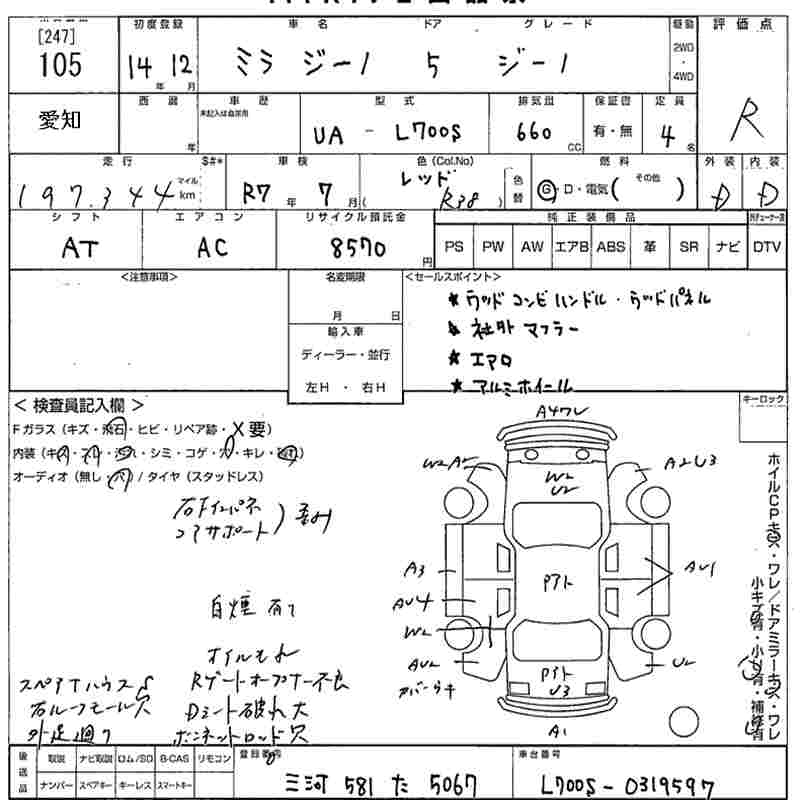 [247]
105
初度登録
14 12
年 月
車名 ドア グレード
ミラ ジーノ 5 ジーノ
駆動
2WD
・
4WD
評価点
R
愛知
西暦
年
車歴
未記入は自家用
型式
UA - L700S
排気量
660
CC
保証書
有・無
定員
4
名
走行 $#*
197,344
マイル
km
車検
R7 年 7 月
色(Col.No)
レッド
( R38 )
色替
燃料
G・D・電気 ( その他 )
外装
D
内装
D
シフト
AT
エアコン
AC
リサイクル預託金
8570
円
純正装備品
PS PW AW エアB ABS 革 SR ナビ DTV
<注意事項>
名変期限
月 日
輸入車
ディーラー・並行
左H ・ 右H
<セールスポイント>
★ ウッドコンビハンドル・ウッドパネル
★ 社外マフラー
★ エアロ
★ アルミホイール
< 検査員記入欄 >
Fガラス (キズ・飛石・ヒビ・リペア跡・X要)
内装 (キズ・スレ・汚れ・シミ・コゲ・穴・キレ・
オーディオ (無し・穴) / タイヤ (スタッドレス)
キーロック
右Fインパネ
コアサポート
白煙 有て
オイルもれ
Rゲートオープナー不良
Dシート破れ大
ボンネットロッド穴
スペアTハウスS
右ルーフモール穴
外足廻り
A4ワレ
W2
U2
A2U3
A3
AU4
W2
AU2
カバーウキ
Pアト
Pアト
U3
AU1
U2
A1
ホイルCPキズ・ワレ/ドアミラーキズ・ワレ
小キズ有・小凹有・補修有
後送品
取説 ナビ取説 ロム/SD B-CAS リモコン
ナンバー スペアキー キーレス スマートキー
登録番号
三河 581 た 5067
車台番号
L700S-0319597